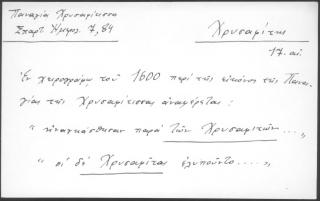 Παναγία Χρυσαφίτισσα
Σπαρτ. Ημερ. 7, 84
Χρυσαφίτης
17. αἰ.
Ἐν χειρογράφῳ τοῦ 1600 περὶ τῆς εἰκόνος τῆς Πανα-
γίας τῆς Χρυσαφιτίσσας ἀναφέρεται :
" ἠναγκάσθησαν παρὰ τῶν Χρυσαφιτῶν ... "
" οἱ δὲ Χρυσαφῖται ἐλυποῦντο ..... "